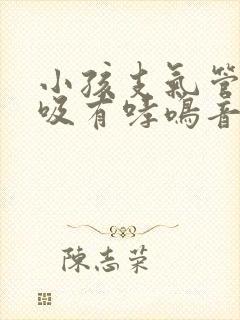 小孩支氣管
吸有哮鳴音
陳志荣